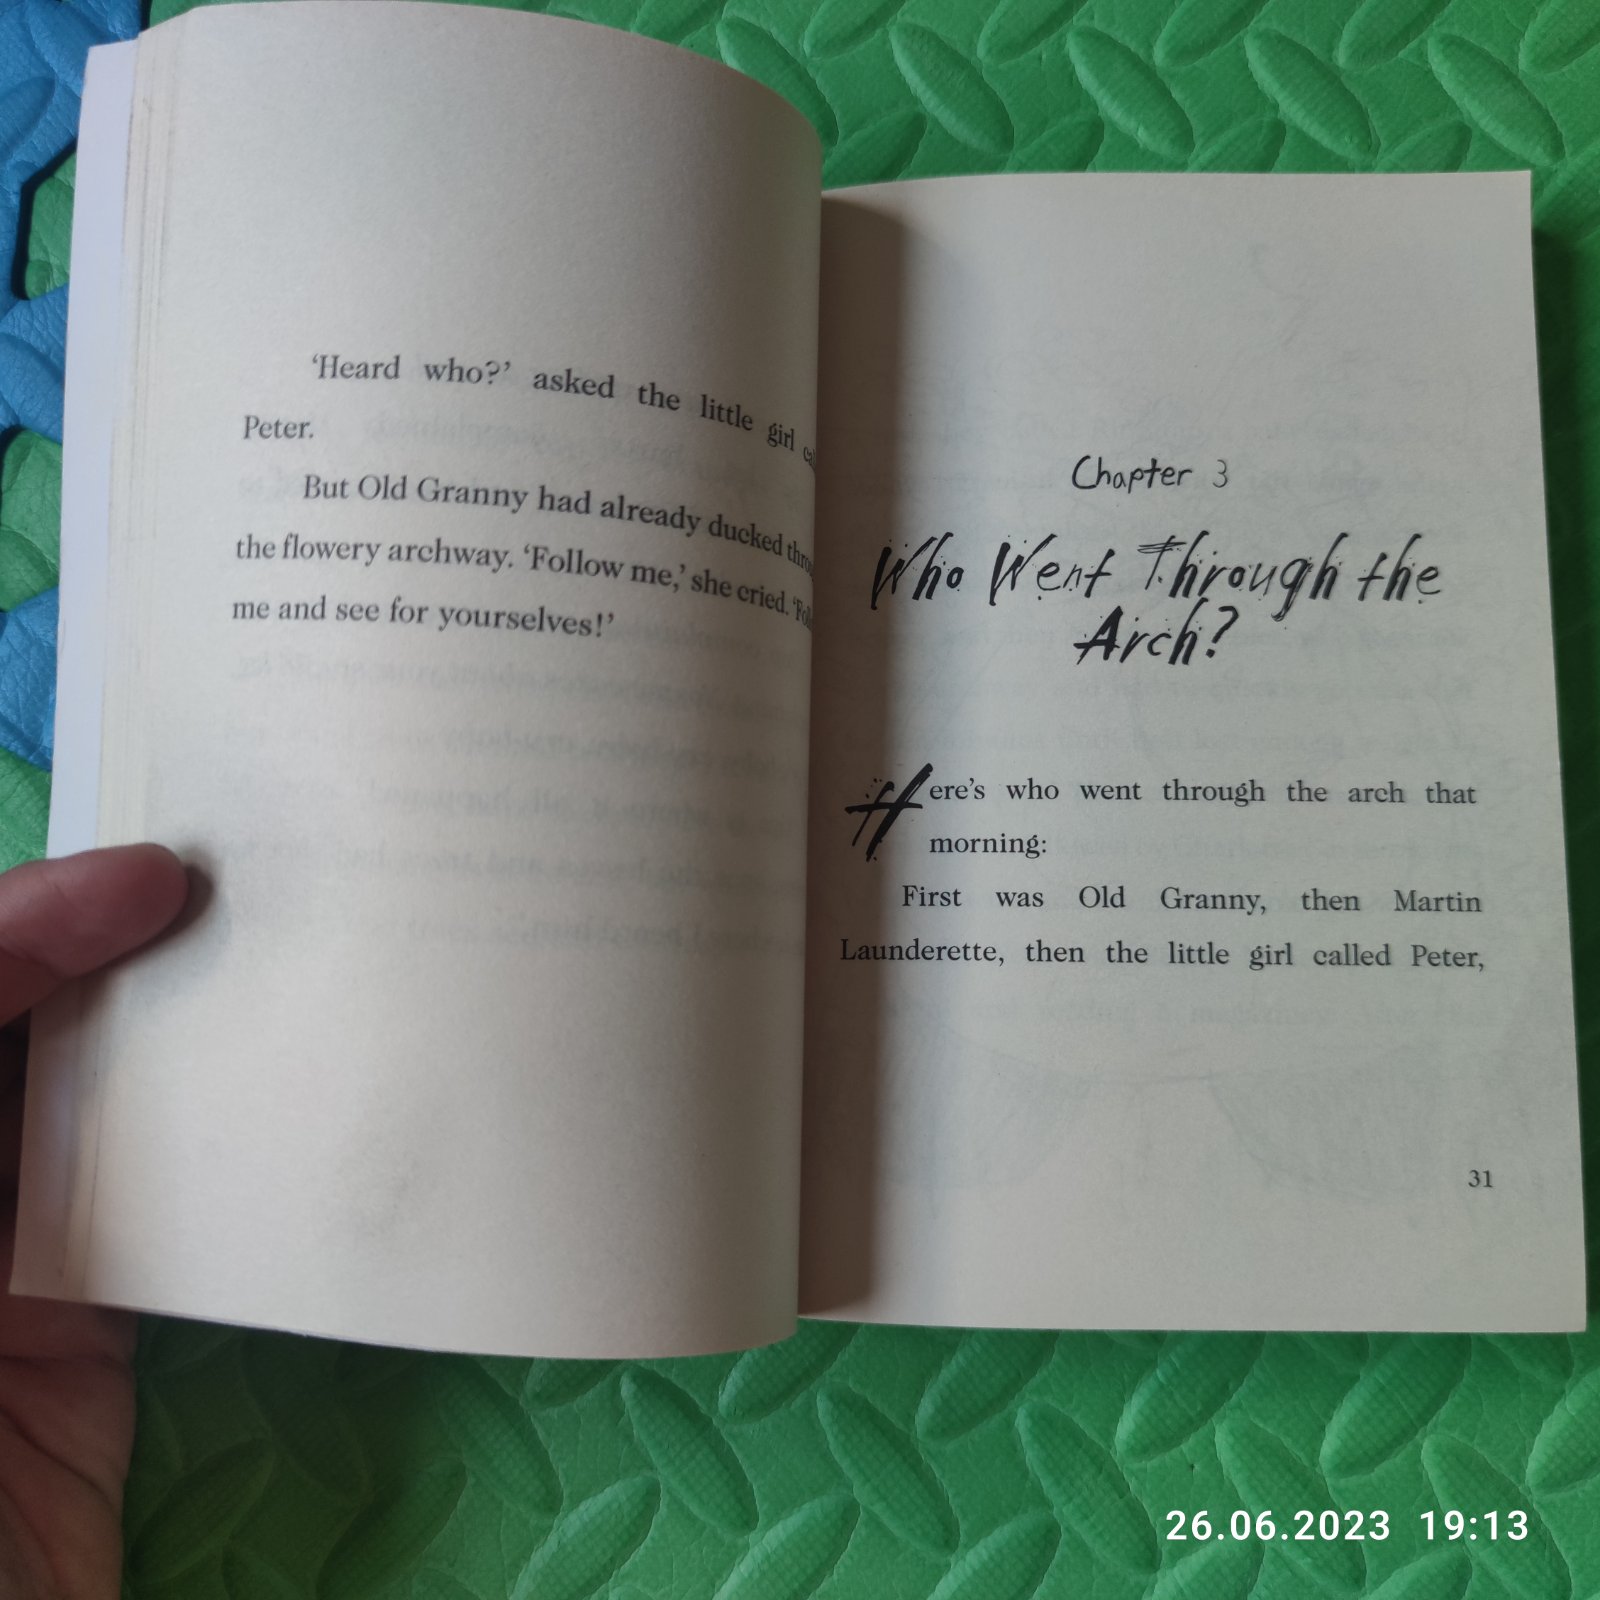 ‘Heard who?’ asked the little girl
Peter.
But Old Granny had already ducked
the flowery archway. ‘Follow me,’ she cried.
me and see for yourselves!’
Chapter 3
Who Went Through the
Arch?
Here’s who went through the arch that
morning:
First was Old Granny, then Martin
Launderette, then the little girl called Peter,
31
26.06.2023 19:13